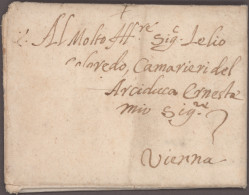 Al Molto Ill.re Sig.r Lelio
Coloredo, Camarieri del
Arciduca Ernesto
mio Sig.re
Vienna